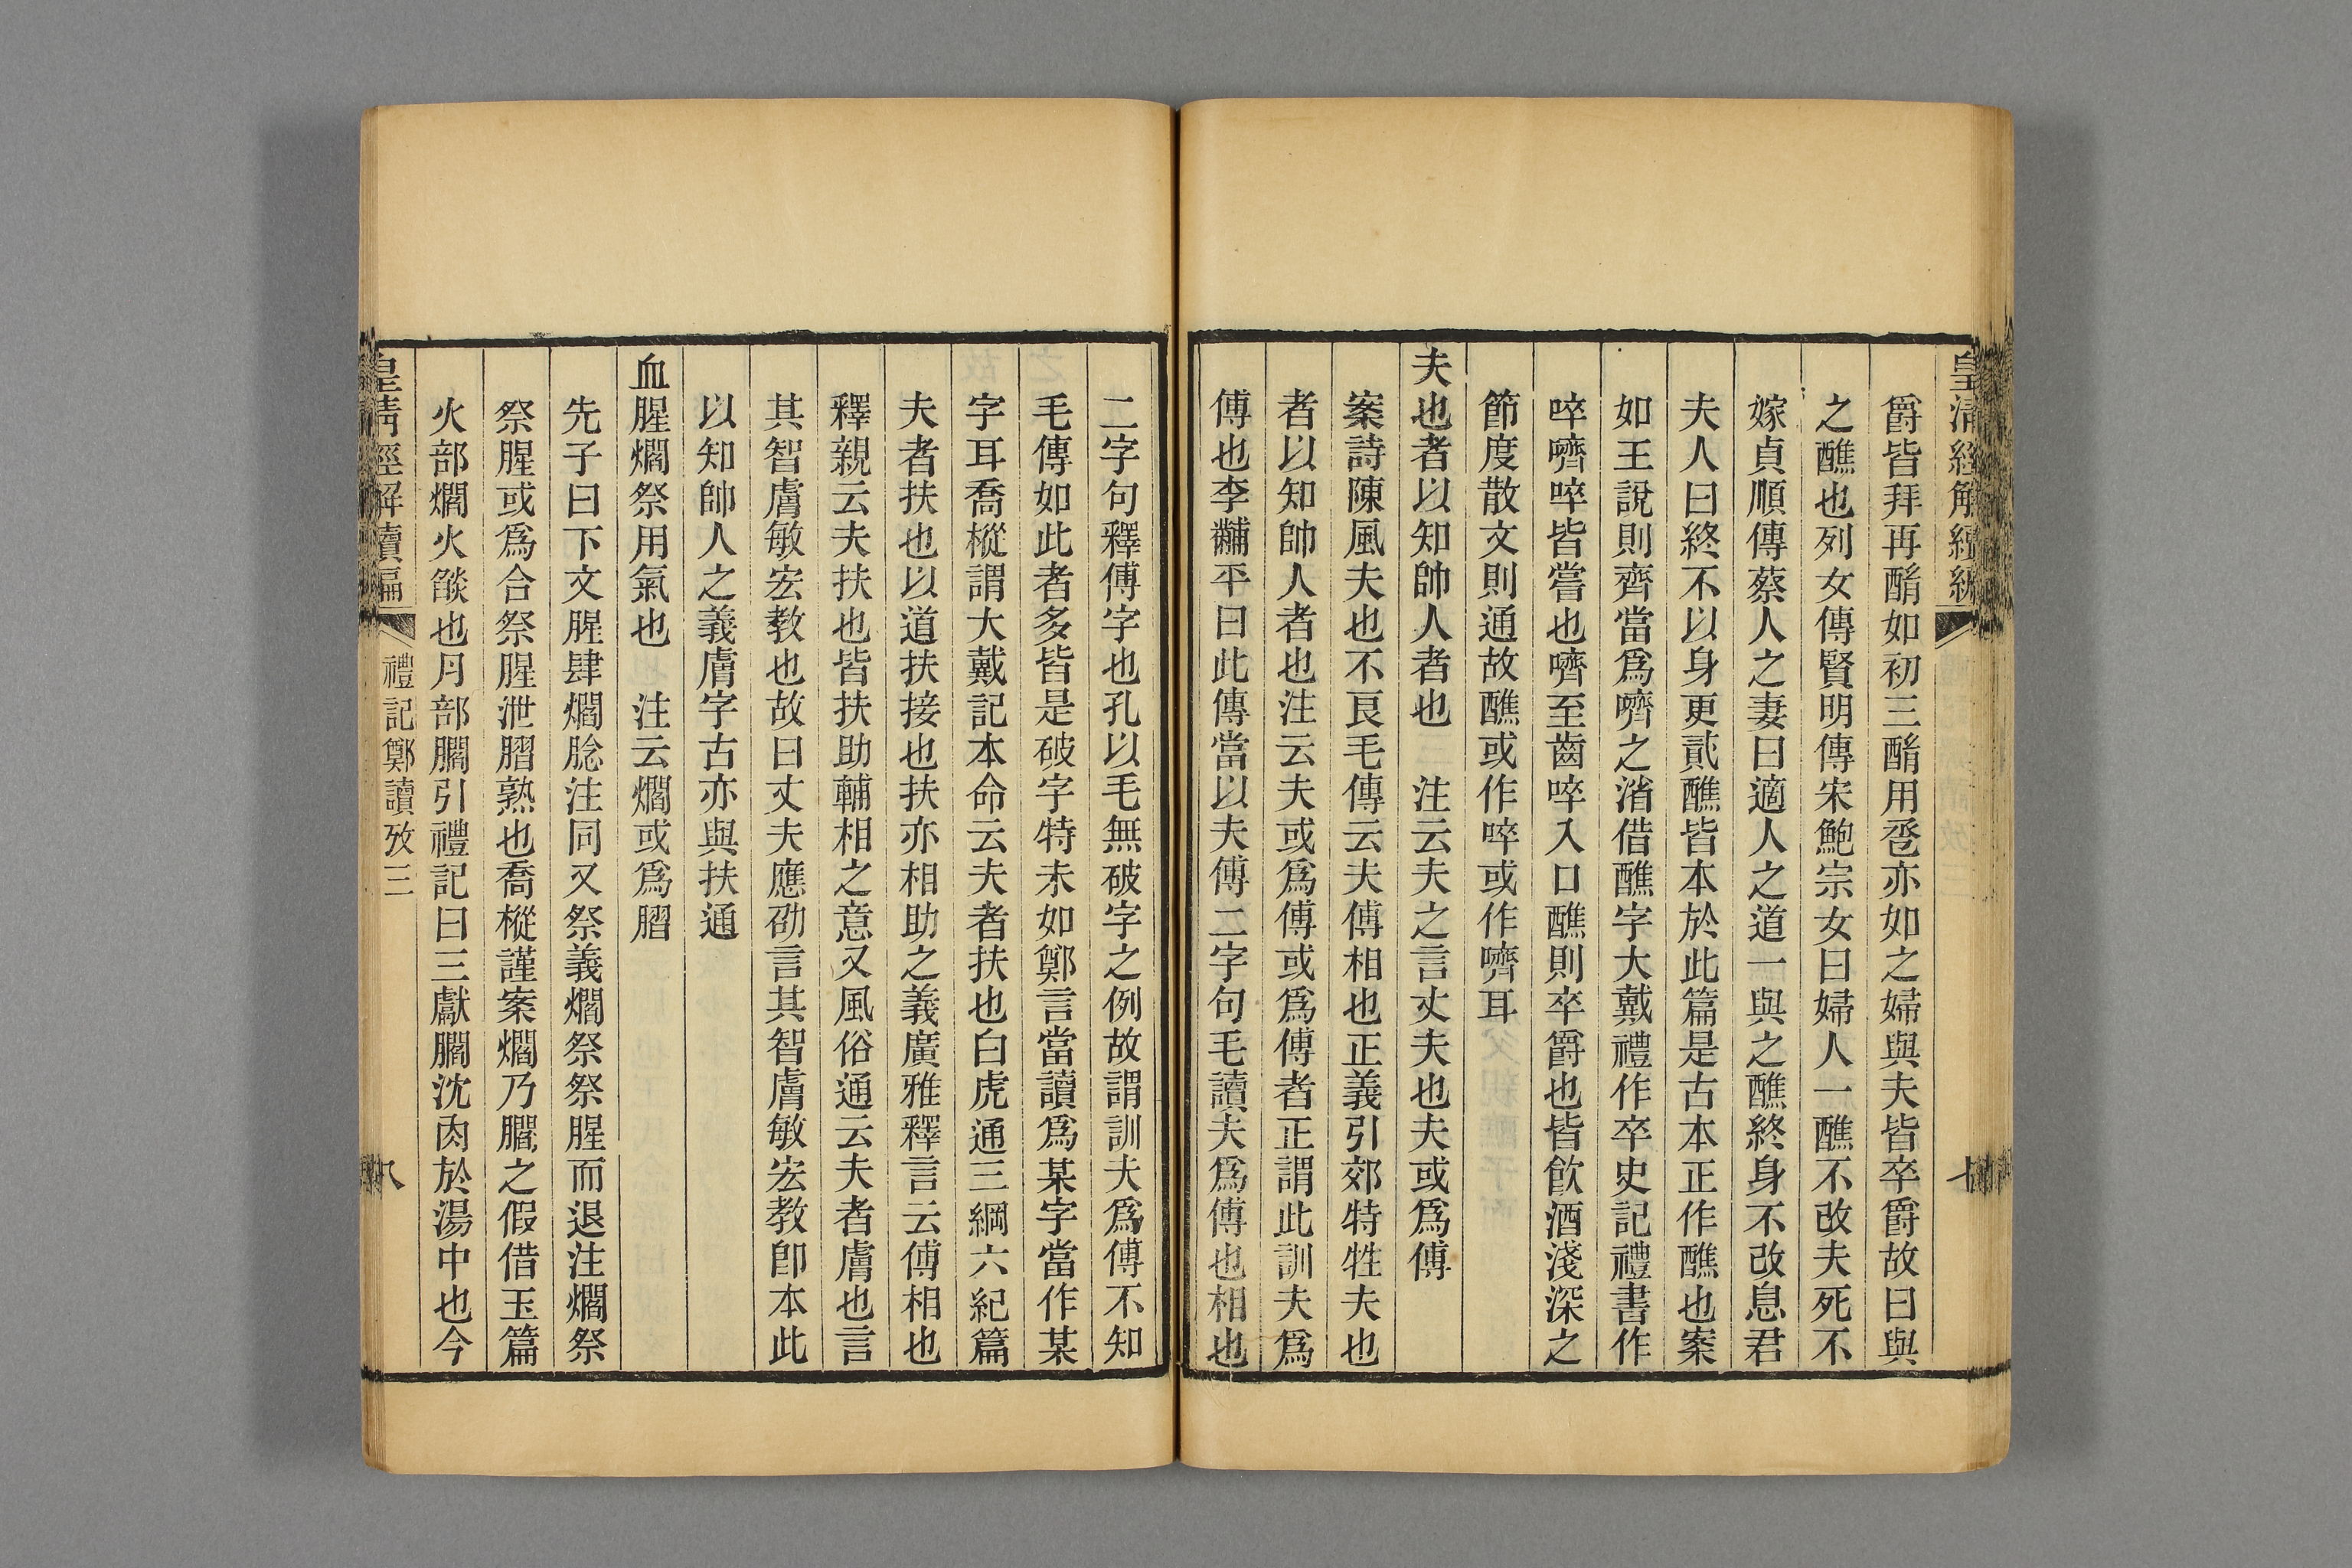 皇清經解續編
七
爵皆拜再酳如初三酳用巹亦如之婦與夫皆卒爵故曰與
之醮也列女傳賢明傳宋鮑宗女曰婦人一醮不改夫死不
嫁貞順傳蔡人之妻曰適人之道一與之醮終身不改息君
夫人曰終不以身更貳醮皆本於此篇是古本正作醮也案
如王說則齊當爲嚌之渻借醮字大戴禮作卒史記禮書作
啐嚌啐皆嘗也嚌至齒啐入口醮則卒爵也皆飮酒淺深之
節度散文則通故醮或作啐或作嚌耳
夫也者以知帥人者也　注云夫之言丈夫也夫或爲傅
案詩陳風夫也不良毛傳云夫傅相也正義引郊特牲夫也
者以知帥人者也注云夫或爲傅或爲傅者正謂此訓夫爲
傅也李黼平曰此傳當以夫傅二字句毛讀夫爲傅也相也
二字句釋傅字也孔以毛無破字之例故謂訓夫爲傅不知
毛傳如此者多皆是破字特未如鄭言當讀爲某字當作某
字耳喬樅謂大戴記本命云夫者扶也白虎通三綱六紀篇
夫者扶也以道扶接也扶亦相助之義廣雅釋言云傅相也
釋親云夫扶也皆扶助輔相之意又風俗通云夫者膚也言
其智膚敏宏教也故曰丈夫應劭言其智膚敏宏教卽本此
以知帥人之義膚字古亦與扶通
血腥爓祭用氣也　注云爓或爲膶
先子曰下文腥肆爓腍注同又祭義爓祭祭腥而退注爓祭
祭腥或爲合祭腥泄膶孰也喬樅謹案爓乃臛之假借玉篇
火部爓火燄也月部臛引禮記曰三獻臛沈肉於湯中也今
皇清經解續編
禮記鄭讀攷三
八